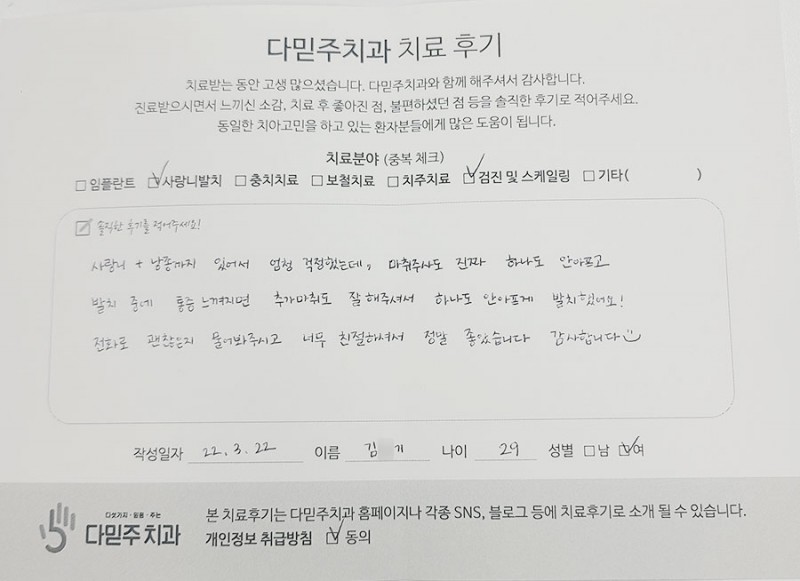 다믿주치과 치료 후기
치료받는 동안 고생 많으셨습니다. 다믿주치과와 함께 해주셔서 감사합니다.
진료받으시면서 느끼신 소감, 치료 후 좋아진 점, 불편하셨던 점 등을 솔직한 후기로 적어주세요.
동일한 치아고민을 하고 있는 환자분들에게 많은 도움이 됩니다.
치료분야 (중복 체크)
□임플란트 ☑사랑니발치 □충치치료 □보철치료 □치주치료 ☑검진 및 스케일링 □기타( )
솔직한 후기를 적어주세요!
사랑니 + 낭종까지 있어서 엄청 걱정했는데, 마취주사도 진짜 하나도 안아프고
발치 중에 통증 느껴지면 추가마취도 잘 해주셔서 하나도 안아프게 발치했어요!
전화로 괜찮은지 물어봐주시고 너무 친절하셔서 정말 좋았습니다 감사합니다
작성일자 22. 3. 22 이름 김 기 나이 29 성별 □남 ☑여
다섯가지·믿음·주는
다믿주치과
본 치료후기는 다믿주치과 홈페이지나 각종 SNS, 블로그 등에 치료후기로 소개 될 수 있습니다.
개인정보 취급방침 ☑ 동의